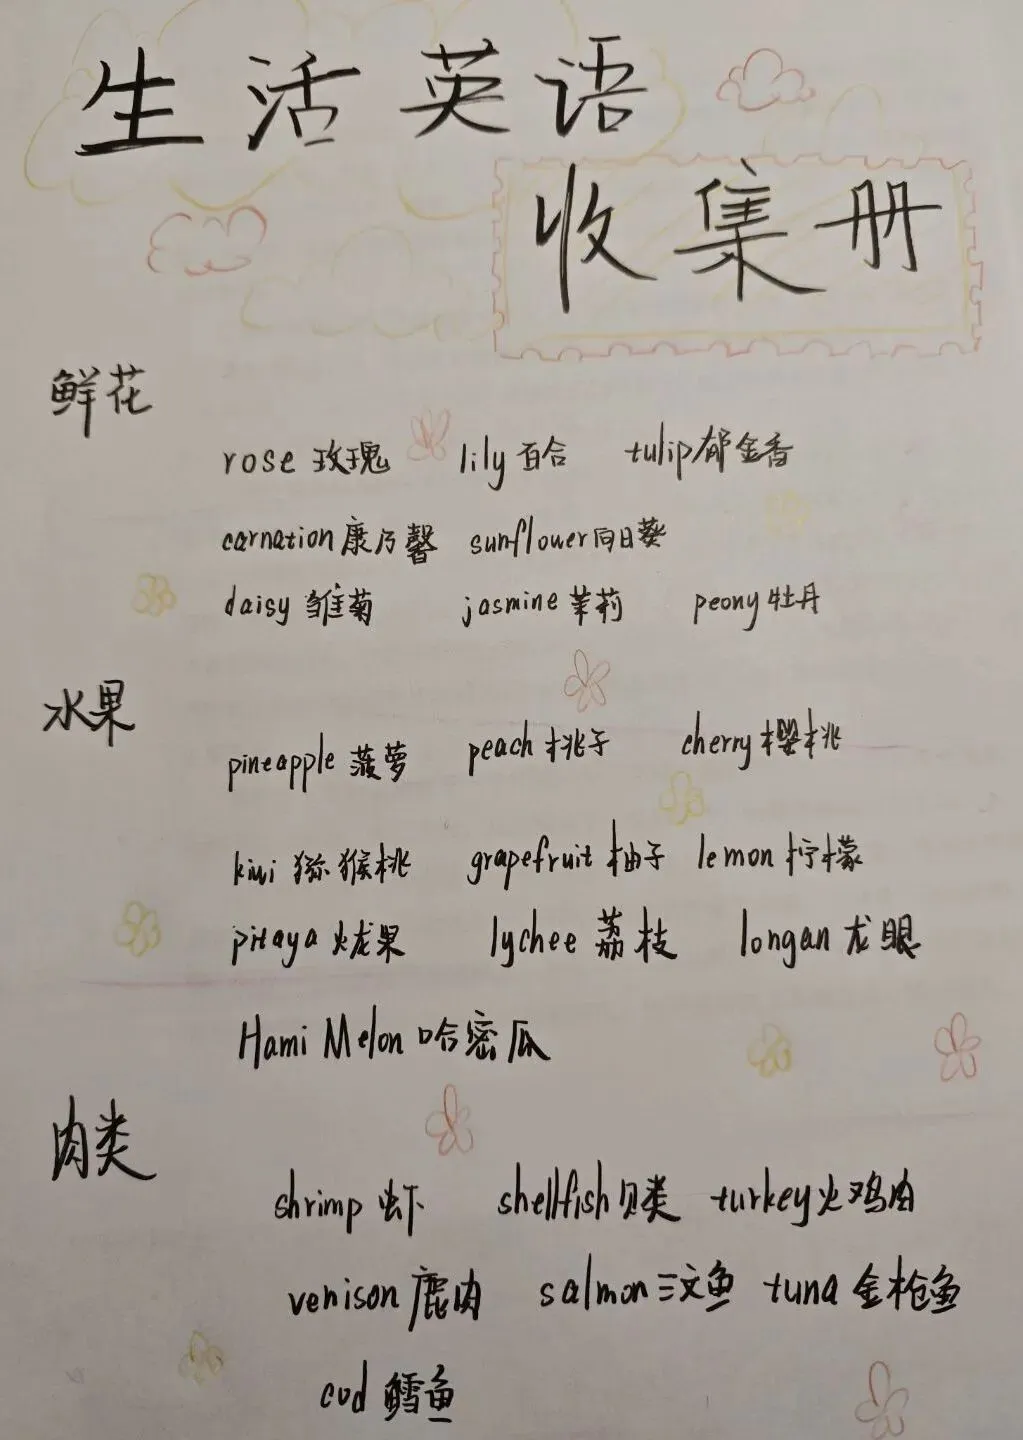 生活英语
收集册
鲜花
rose 玫瑰 lily 百合 tulip 郁金香
carnation 康乃馨 sunflower 向日葵
daisy 雏菊 jasmine 茉莉 peony 牡丹
水果
pineapple 菠萝 peach 桃子 cherry 樱桃
kiwi 猕猴桃 grapefruit 柚子 lemon 柠檬
pitaya 火龙果 lychee 荔枝 longan 龙眼
Hami Melon 哈密瓜
肉类
shrimp 虾 shellfish 贝类 turkey 火鸡肉
venison 鹿肉 salmon 三文鱼 tuna 金枪鱼
cod 鳕鱼